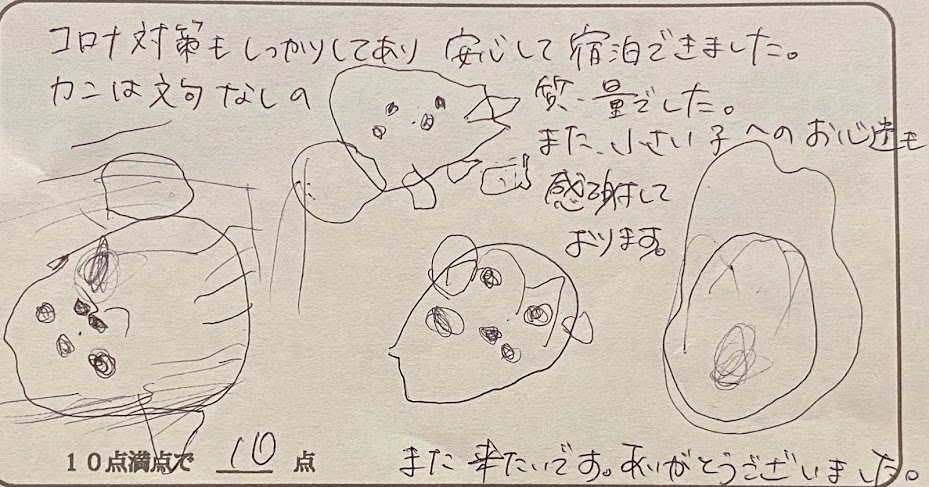 コロナ対策もしっかりしてあり 安心して宿泊できました。
カニは文句なしの 質・量でした。
また、小さい子へのお心遣も
感謝して
おります。
10点満点で 10 点
また来たいです。ありがとうございました。